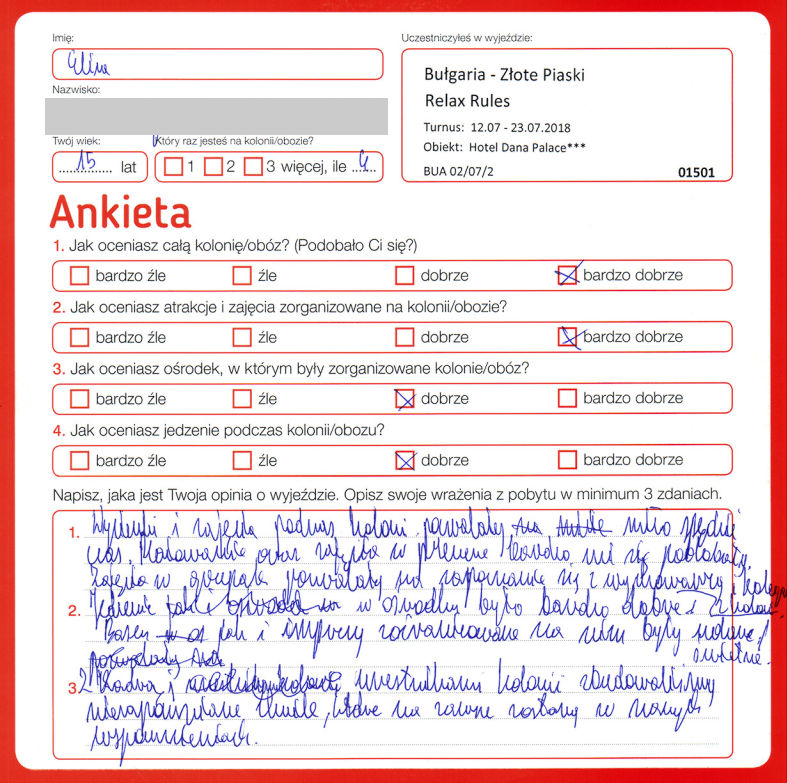 Imię:
Elina
Uczestniczyłeś w wyjeździe:
Bułgaria - Złote Piaski
Relax Rules
Turnus: 12.07 - 23.07.2018
Obiekt: Hotel Dana Palace***
BUA 02/07/2 01501
Nazwisko:
Twój wiek:
15 lat
Który raz jesteś na kolonii/obozie?
1 2 3 więcej, ile 4
Ankieta
1. Jak oceniasz całą kolonię/obóz? (Podobało Ci się?)
bardzo źle źle dobrze bardzo dobrze
2. Jak oceniasz atrakcje i zajęcia zorganizowane na kolonii/obozie?
bardzo źle źle dobrze bardzo dobrze
3. Jak oceniasz ośrodek, w którym były zorganizowane kolonie/obóz?
bardzo źle źle dobrze bardzo dobrze
4. Jak oceniasz jedzenie podczas kolonii/obozu?
bardzo źle źle dobrze bardzo dobrze
Napisz, jaka jest Twoja opinia o wyjeździe. Opisz swoje wrażenia z pobytu w minimum 3 zdaniach.
1. i zajęcia podczas kolonii pozwalały miło spędzić
czas. oraz zajęcia w plenerze bardzo mi się podobały.
Zajęcia w grupach pozwalały na zapoznanie się z wychowawcą i
2. Jedzenie w ośrodku było bardzo dobre z kolonii
Basen jak i imprezy na nim były udane/
świetne.
3. Kadra i uczestnikami kolonii zbudowaliśmy
niezapomniane chwile, które na zawsze zostaną w naszych
wspomnieniach.